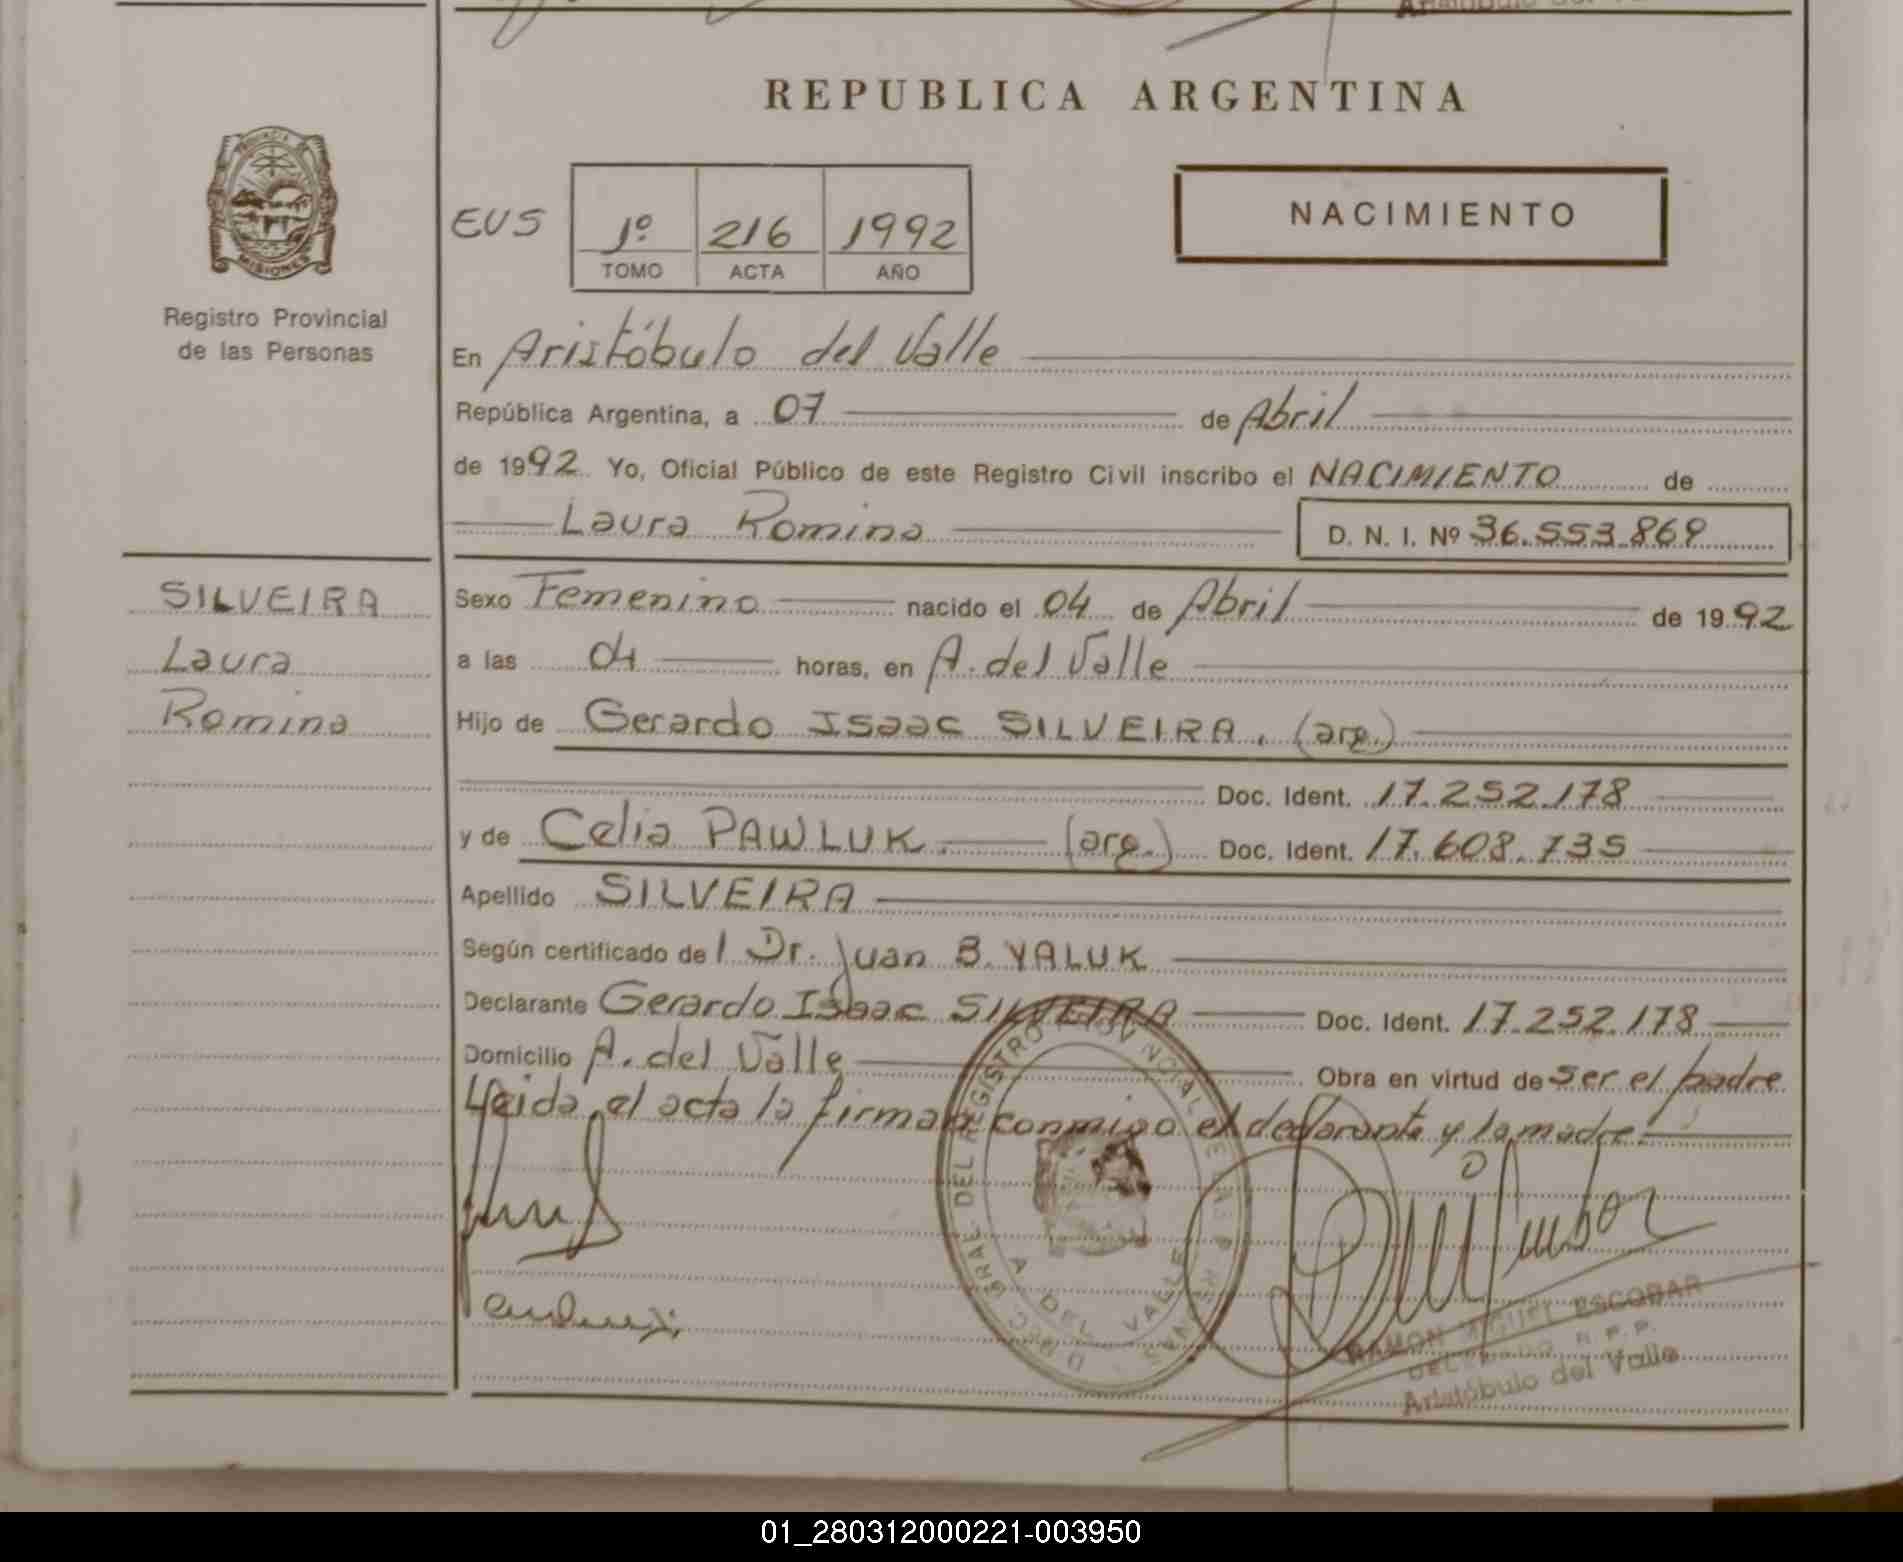 REPUBLICA ARGENTINA
PROVINCIA DE
MISIONES
Registro Provincial
de las Personas
EUS
1º 216 1992
TOMO ACTA AÑO
NACIMIENTO
En Aristóbulo del Valle
República Argentina, a 07 de Abril
de 1992 Yo, Oficial Público de este Registro Civil inscribo el NACIMIENTO de
Laura Romina D. N. I. Nº 36.553.869
SILVEIRA
Laura
Romina
Sexo Femenino nacido el 04 de Abril de 1992
a las 04 horas, en A. del Valle
Hijo de Gerardo Isaac SILVEIRA. (arg.)
Doc. Ident. 17.252.178
y de Celia PAWLUK. (arg.) Doc. Ident. 17.608.735
Apellido SILVEIRA
Según certificado del Dr. Juan B. YALUK
Declarante Gerardo Isaac SILVEIRA Doc. Ident. 17.252.178
Domicilio A. del Valle Obra en virtud de ser el padre
Leida el acta la firman conmigo el declarante y la madre.
A. DEL VALLE
RAMON MIGUEL ESCOBAR
DELEGADO R.P.P.
Aristóbulo del Valle
01_280312000221-003950